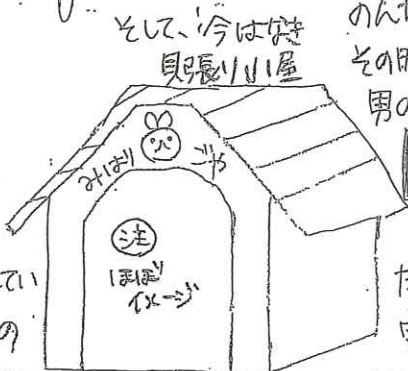 そして、今はなき
見張り小屋
のんｾ
その
男の
みはり ごや
注
ほぼ
イメージ
てい
の